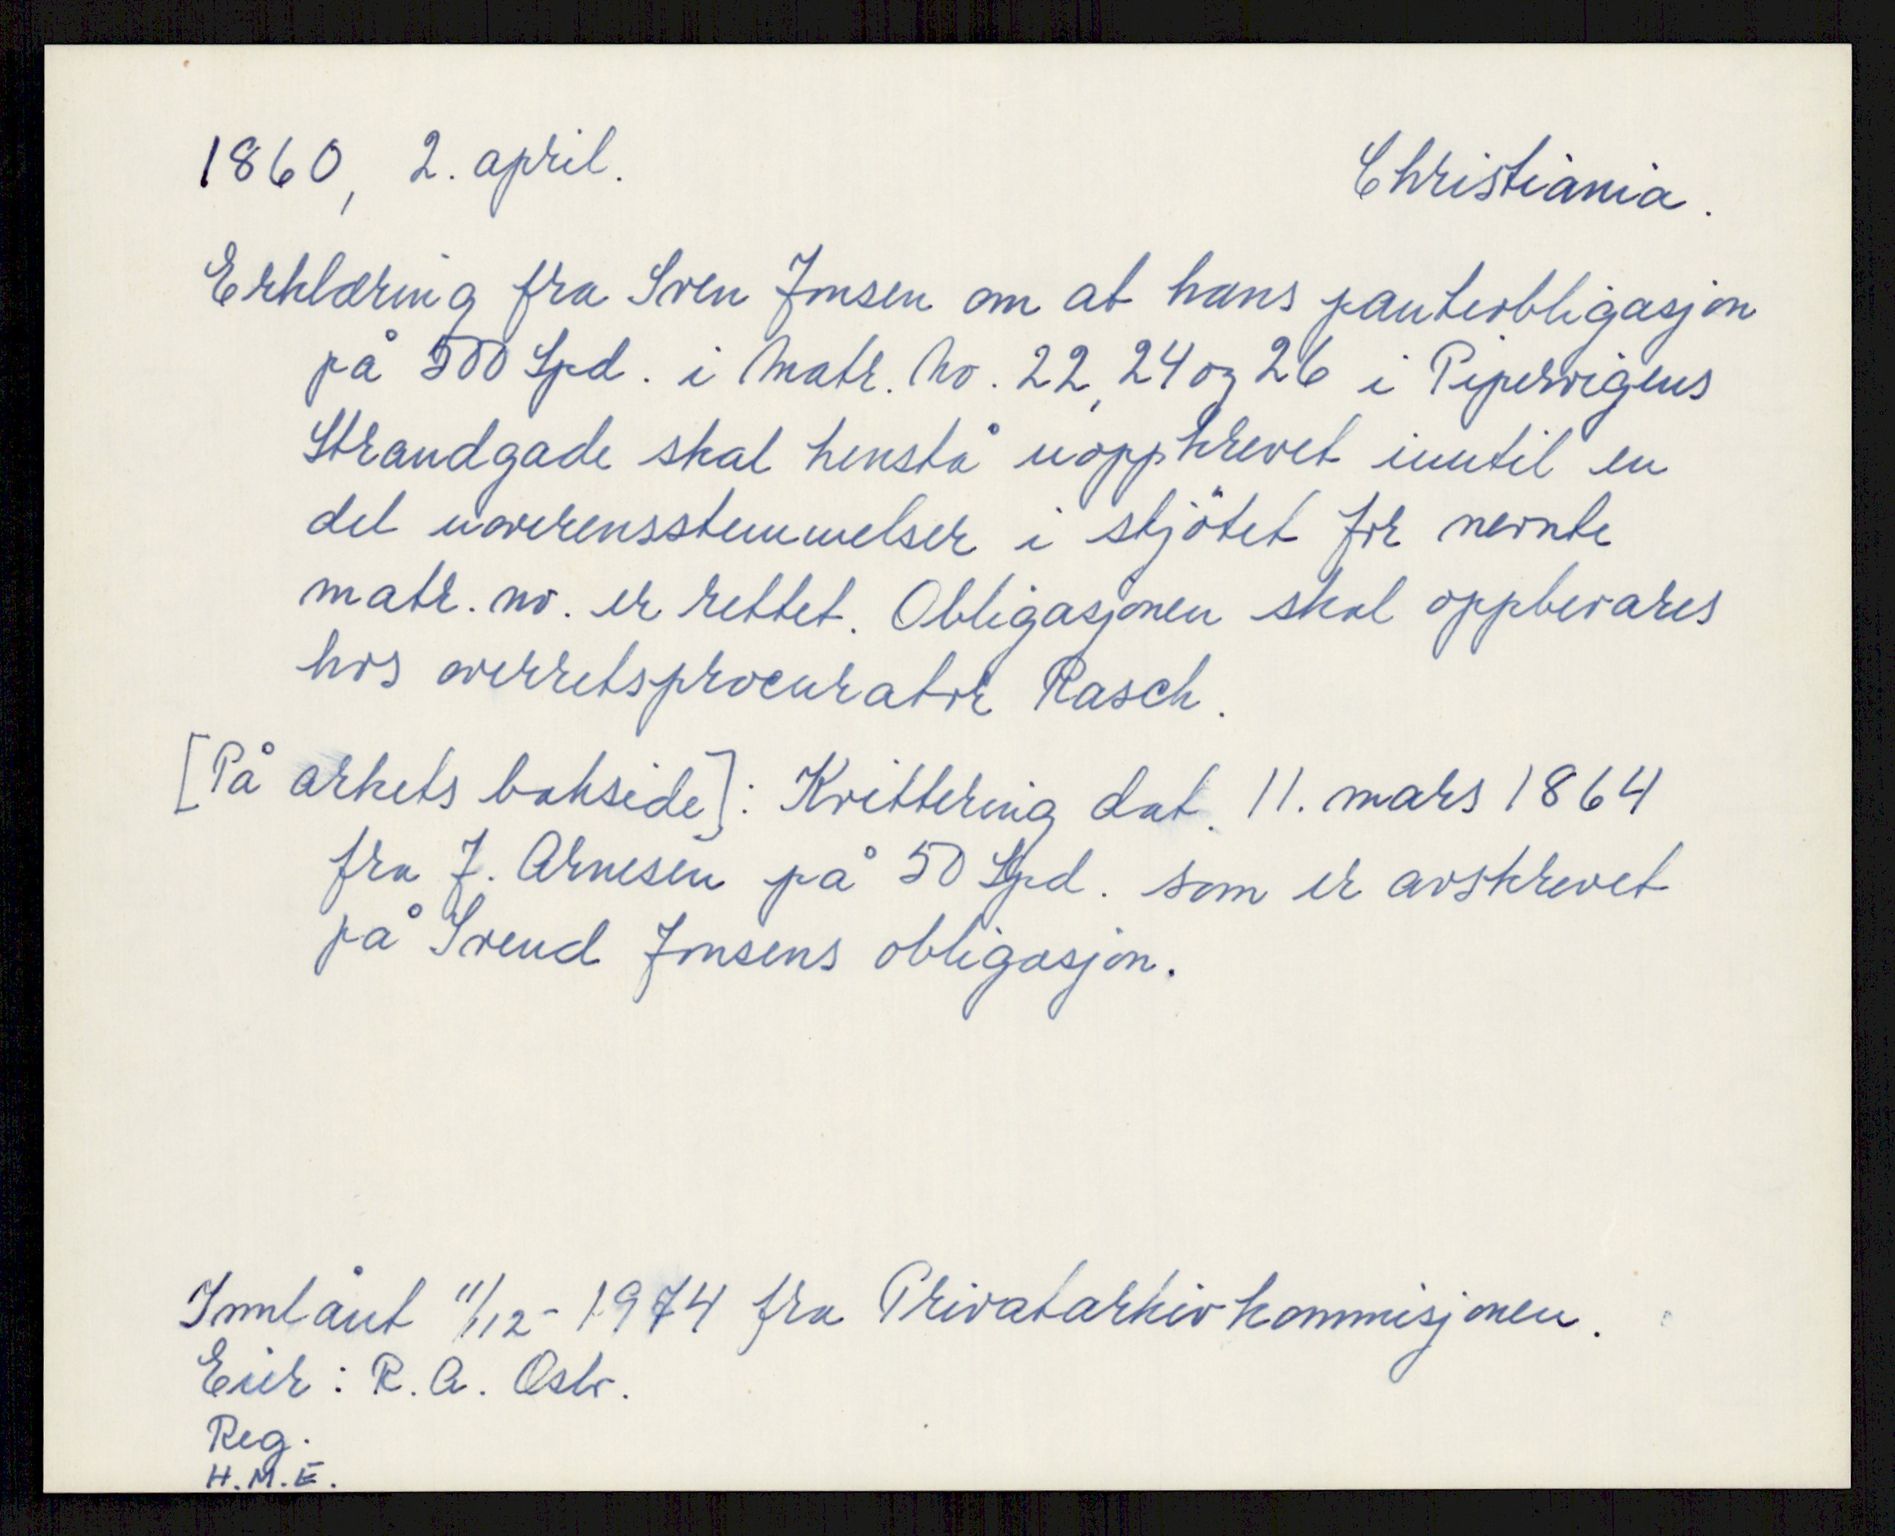 1860, 2. april. Christiania.
Erklæring fra Sven Jonsen om at hans panteobligasjon
på 500 Spd. i Matr. No. 22, 24 og 26 i Pipervigens
Strandgade skal henstå uoppkrevet inntil en
del uoverensstemmelser i skjötet for nevnte
matr. no. er rettet. Obligasjonen skal oppbevares
hos overretsprocurator Rasch.
[På arkets bakside]: Kvittering dat. 11. mars 1864
fra J. Arnesen på 50 Spd. som er avskrevet
på Svend Jonsens obligasjon.
Innlånt 11/12-1974 fra Privatarkivkommisjonen.
Eier: R. A. Oslo.
Reg.
H.M.E.